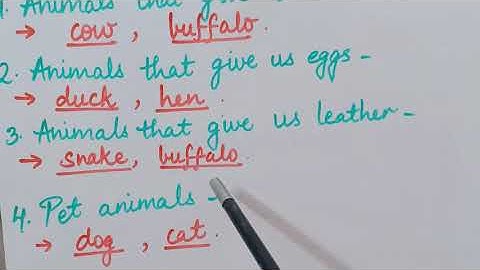 1. Animals that give us
→ cow, buffalo.
2. Animals that give us eggs -
→ duck, hen.
3. Animals that give us leather -
→ snake, buffalo.
4. Pet animals -
→ dog, cat.